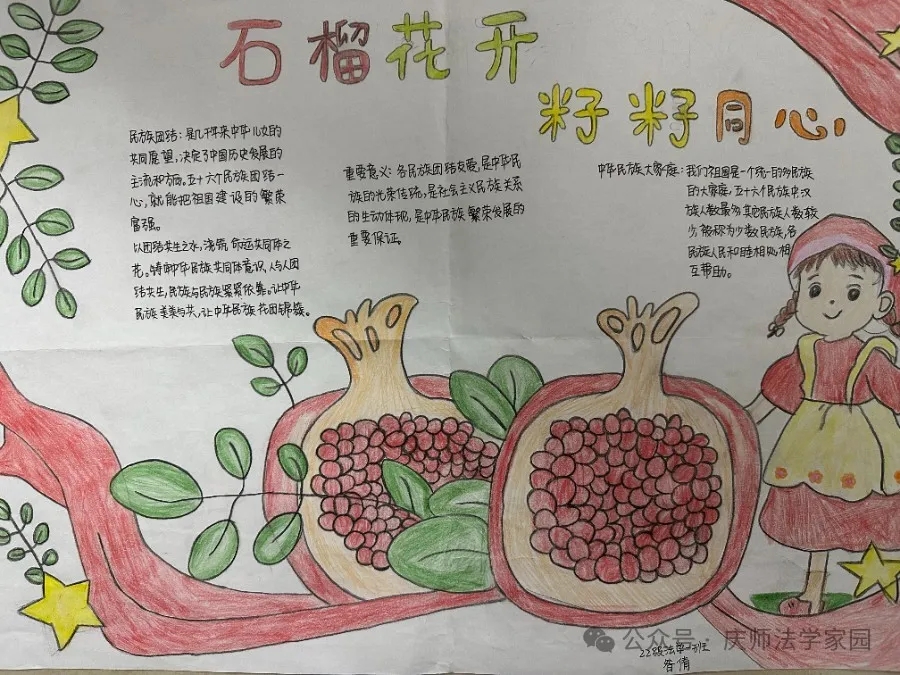 石榴花开
籽籽同心
民族团结：是几千年来中华儿女的
共同愿望，决定了中国历史发展的
主流和方向，五十六个民族团结一
心，就能把祖国建设的繁荣
富强。
以团结共生之水，浇筑命运共同体之
花。铸牢中华民族共同体意识，人与人团
结共生，民族与民族紧紧依靠。让中华
民族美美与共，让中华民族花团锦簇。
重要意义：各民族团结友爱，是中华民
族的光荣传统，是社会主义民族关系
的生动体现，是中华民族繁荣发展的
重要保证。
中华民族大家庭：我们祖国是一个统一的多民族
的大家庭，五十六个民族中，汉
族人数最多，其他民族人数较
少，被称为少数民族，各
民族人民和睦相处，相
互帮助。
22级法学2班
倩
公众号·庆师法学家园